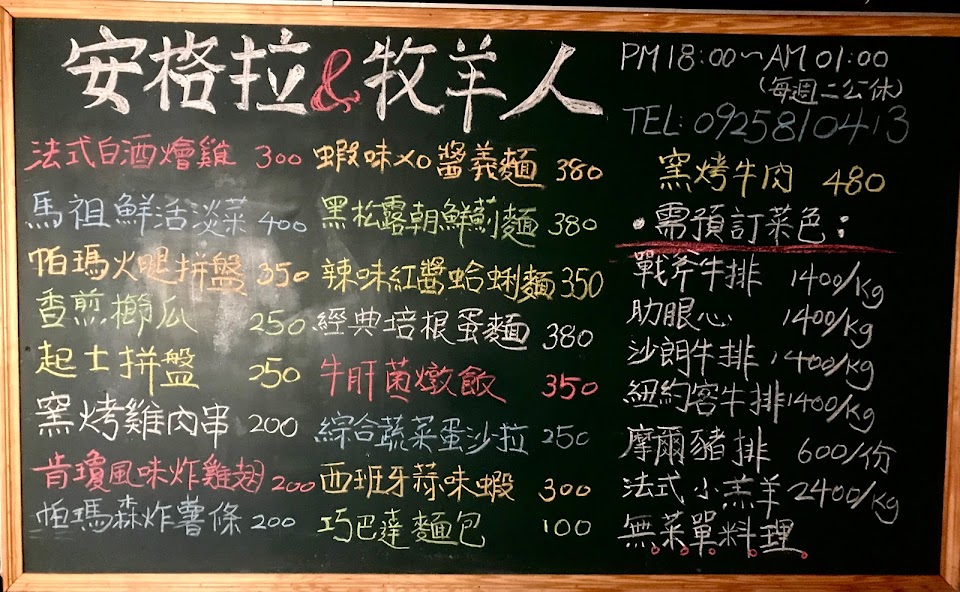 安格拉&牧羊人
法式白酒燴雞 300
馬祖鮮活淡菜 400
帕瑪火腿拼盤 350
香煎櫛瓜 250
起士拼盤 250
窯烤雞肉串 200
肯瓊風味炸雞翅 200
帕瑪森炸薯條 200
蝦味XO醬義麵 380
黑松露朝鮮薊麵 380
辣味紅醬蛤蜊麵 350
經典培根蛋麵 380
牛肝菌燉飯 350
綜合蔬菜蛋沙拉 250
西班牙蒜味蝦 300
巧巴達麵包 100
PM 18:00~AM 01:00
(每週二公休)
TEL: 0925810413
窯烤牛肉 480
•需預訂菜色:
戰斧牛排 1400/kg
肋眼心 1400/kg
沙朗牛排 1400/kg
紐約客牛排 1400/kg
摩爾豬排 600/份
法式小羔羊 2400/kg
無菜單料理